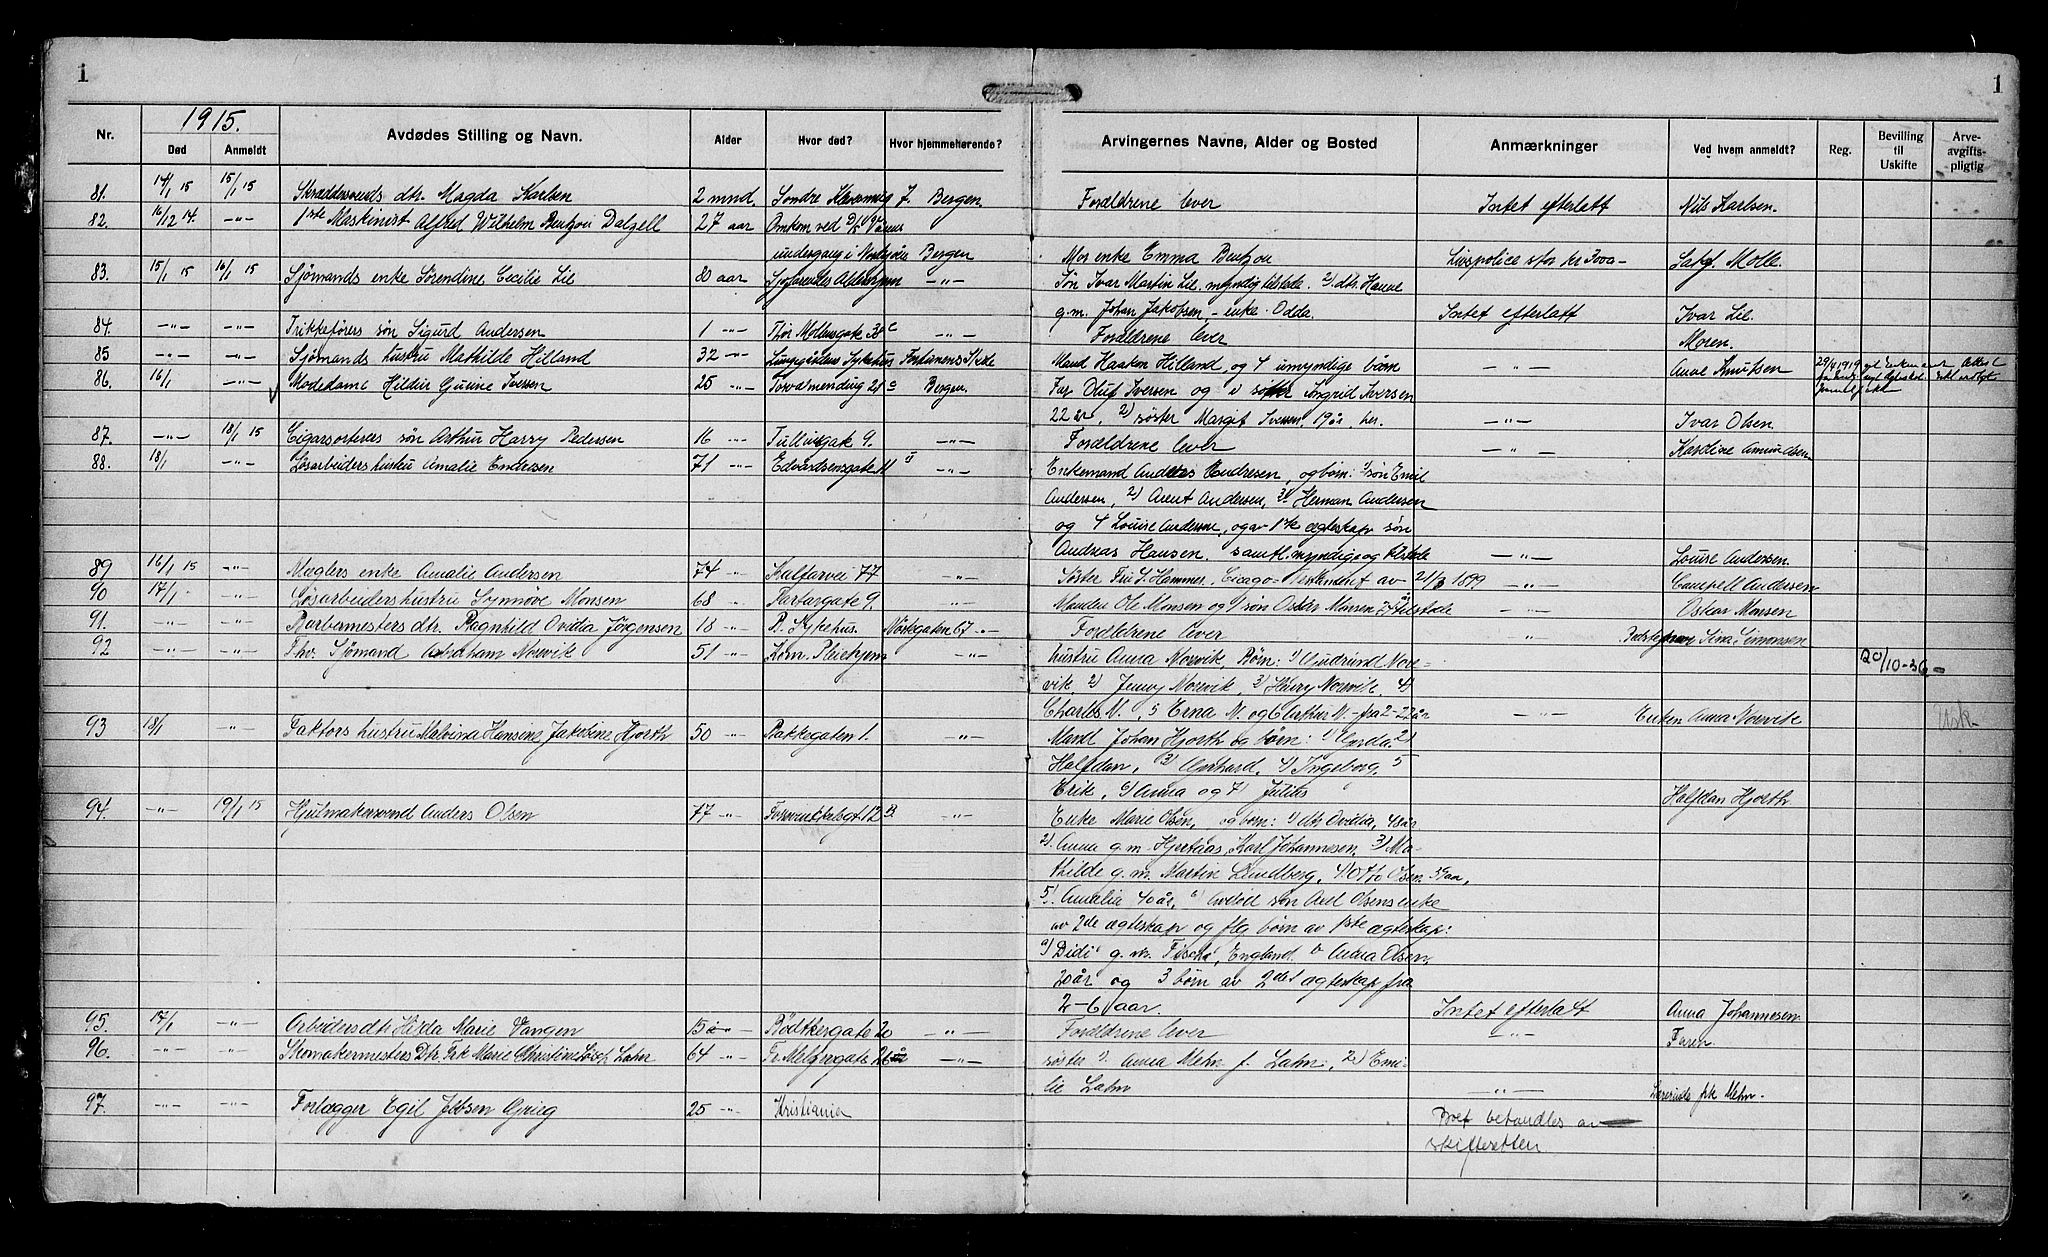 1
1
1915.
Nr. Død Anmeldt Avdødes Stilling og Navn. Alder Hvor død? Hvor hjemmehørende? Arvingernes Navne, Alder og Bosted Anmærkninger Ved hvem anmeldt? Reg. Bevilling til Uskifte Arve-avgifts-pligtig
81. 14/1 15 15/1 15 Skræddersvends dtr. Magda Karlsen 2 mnd. Søndre 7. Bergen Forældrene lever Intet efterlatt Nils Karlsen.
82. 16/12 14. -"- 1ste Maskinist Alfred Wilhelm Bentzon Dalzell 27 aar Omkom ved D/S
undergang i Bergen Mor enke Emma Bentzon Livspolice stor kr 3000- Sakf. Molle.
83. 15/1 15 16/1 15 Sjømands enke Sørendine Cecilie Lie 80 aar -"- Søn Ivar Martin Lie, myndig tilstede. 2) dtr. Hanne
g.m. Johan Jakobsen, - enke - Odda. Intet efterlatt Ivar Lie.
84. -"- -"- Trikkeførers søn Sigurd Andersen 1 -"- Thor Møllersgate 38 c -"- Forældrene lever Moren.
85 -"- -"- Sjømands hustru Mathilde Hilland 32 -"- Mand Haakon Hilland, og 4 umyndige børn -"- Anne Knutsen
86. 16/1 -"- Modedame Hildur Guine Iversen 25 -"- 21 c Bergen. Far Oluf Iversen og søster Ingrid Iversen
22 år, 2) søster Margit Iversen, 19 år, her. -"- Ivar Olsen
87. -"- 18/1 15 Cigarsorterers søn Arthur Harry Pedersen 16 -"- Tullinsgate 9. -"- Forældrene lever -"- Kardine
88. 18/1 -"- Løsarbeiders hustru Amalie Endresen 71 -"- Edvardsensgate 11 -"- Enkemand Anders Endresen, og børn: 1) søn Emil
Andersen, 2) Arent Andersen, 3) Herman Andersen
og 4 Louise Andersen, og av 1ste ægteskap søn
Andreas Hansen, samtl. myndige og tilstede -"- Louise Andersen.
89 16/1 15 -"- Mæglers enke Amalie Andersen 74 -"- Kalfarvei 77 -"- Søster Fru S. Hammer, Cicago - Testament av 21/3 1899 -"- Campell Andersen
90 17/1 -"- Løsarbeiders hustru Synnøve Monsen 68 -"- 9. -"- Manden Ole Monsen og 1 søn Oskar Monsen tilstede -"- Oskar Monsen
91. -"- -"- Barbermesters dtr. Ragnhild Ovidia Jørgensen 18 -"- B. Sykehus. Nøstegaten 67 -"- Forældrene lever " Sina Simonsen
92 -"- -"- Fhv. Sjømand Abraham Norvik 51 -"- Kom. Pleiehjem -"- hustru Anna Norvik Børn: 1) Gudrund Nor- 20/10-36 -
vik, 2) Jenny Norvik, 3) Harry Norvik, 4)
Charles N., 5 Erna N. og Arthur N. - fra 2 - 22 år -"- Enken Anna Norvik Usk-
93 18/1 -"- Faktors hustru Malvina Hansine Jakobine Hjorth 50 -"- Bakkegaten 1. -"- Mand Johan Hjorth og børn: 1) Gerda, 2)
Halfdan, 3) Gerhard, 4) Ingeborg, 5
Erik, 6) Anna og 7) Julius Halfdan Hjorth
94. -"- 19/1 15 Hjulmakersvend Anders Olsen 77 -"- 12 B. -"- Enke Marie Olsen, og børn: 1) dtr. Ovidia, 48 år
2) Anna g.m. Hjertaas, Karl Johannesen, 3) Ma-
thilde g.m. Martin Lundberg, 4) Otto Olsen
5) Amalia 40 år, 6) Avdød søn Axel Olsens enke
av 2de ægteskap og flg børn av 1ste ægteskap:
a) Didi g.m. England. b Anna Olsen,
20 år og 3 børn av 2det ægteskap fra
2-6 aar. Intet efterlatt Anna Johannesen
95. 17/1 -"- Arbeiders dtr. Hilda Marie Vangen 15 -"- Bødtkersgate 20 -"- Forældrene lever -"- Faren
96. -"- -"- Skomakermesters Dtr. Frk Marie Christine Lahn 64 -"- Fr. Meltzersgate -"- søster 1) Anna Mehn f. Lahn, 2) Emi-
lie Lahn -"- frk Mehn.
97. -"- -"- Forlægger Egil Jebsen Grieg 25 -"- Kristiania
Boet behandles av
skifteretten